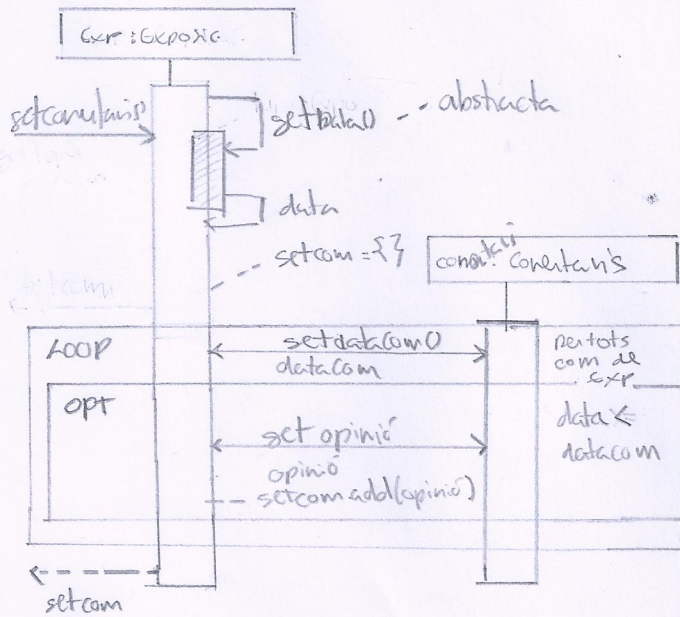 Exp :Exposic
setComentaris
setData() -- abstracta
data
setcom = {}
coment: Comentaris
LOOP
setdatacom()
datacom
per tots
com de
Exp
OPT
data <
datacom
set opinió
opinió
setcom add(opinió)
setcom